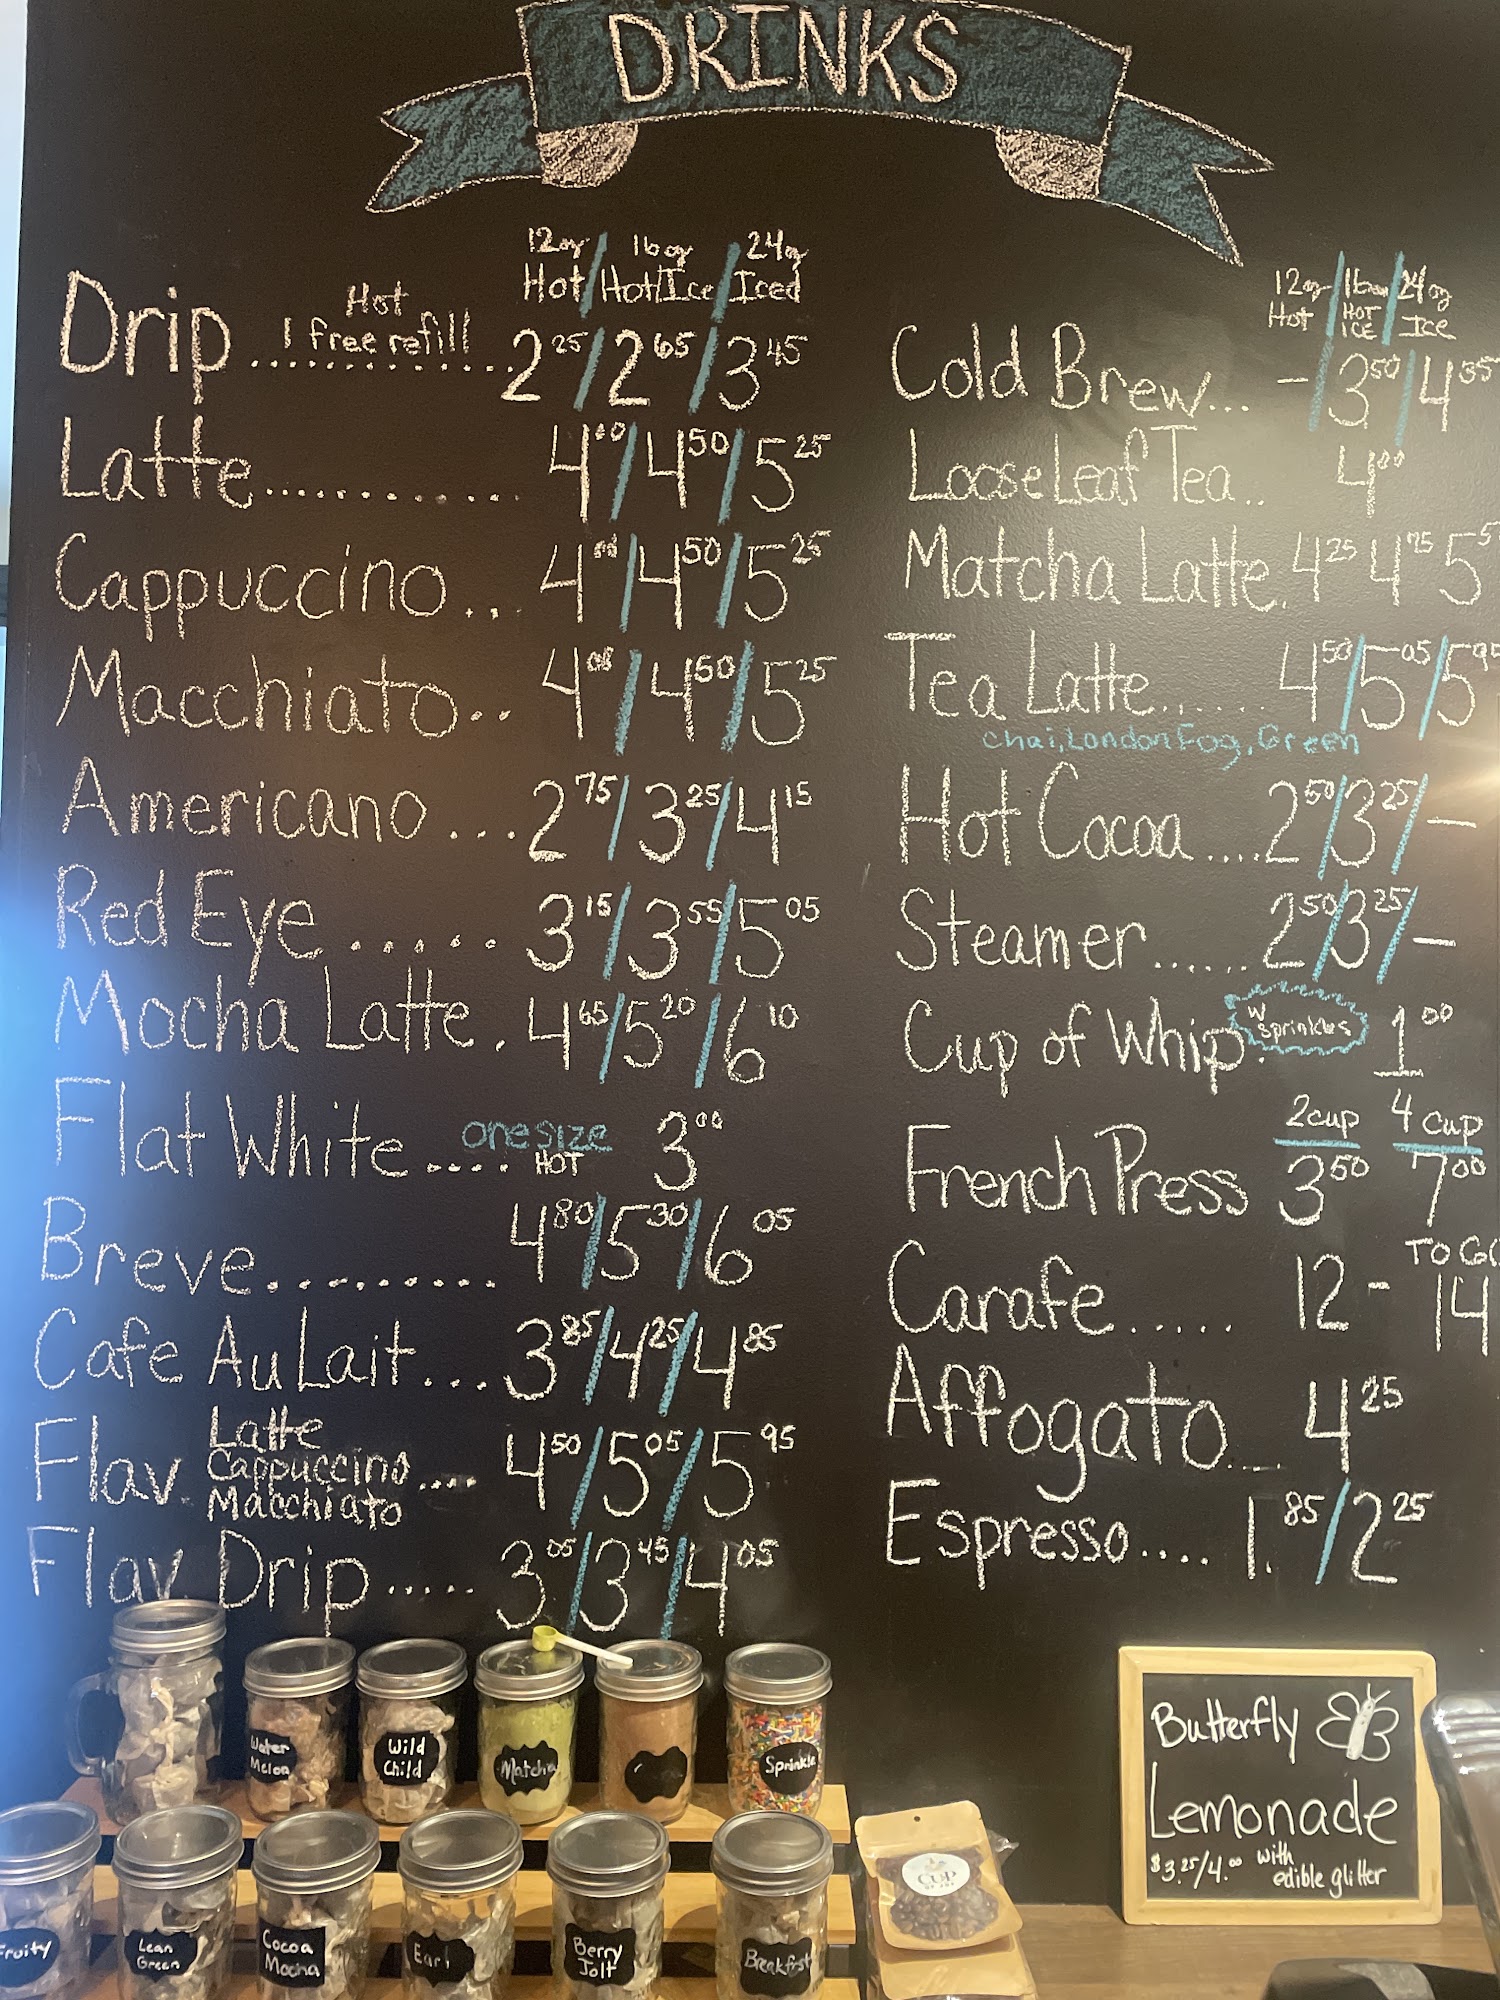 DRINKS
12oz / 16oz / 24oz
Hot / Hot/Ice / Iced
Drip Hot 1 free refill ............. 2.25 / 2.65 / 3.45
Latte............. 4.00 / 4.50 / 5.25
Cappuccino... 4.00 / 4.50 / 5.25
Macchiato.. 4.00 / 4.50 / 5.25
Americano ... 2.75 / 3.25 / 4.15
Red Eye ...... 3.15 / 3.55 / 5.05
Mocha Latte. 4.65 / 5.20 / 6.10
Flat White .... one size HOT 3.00
Breve.......... 4.80 / 5.30 / 6.05
Cafe Au Lait... 3.85 / 4.25 / 4.85
Flav. Latte Cappuccino Macchiato .... 4.50 / 5.05 / 5.95
Flav. Drip ..... 3.05 / 3.45 / 4.05
12oz / 16oz / 24oz
Hot / HOT ICE / Ice
Cold Brew... - / 3.50 / 4.35
Loose Leaf Tea.. 4.00
Matcha Latte. 4.25 4.75 5.5
Tea Latte....... 4.50 / 5.05 / 5.95
Chai, London Fog, Green
Hot Cocoa .... 2.50 / 3.25 / -
Steamer...... 2.50 / 3.25 / -
Cup of Whip. w sprinkles 1.00
2cup 4 cup
French Press 3.50 7.00
TO GO
Carafe..... 12 - 14
Affogato.... 4.25
Espresso.... 1.85 / 2.25
Butterfly
Lemonade
$3.25/4.00 with
edible glitter
Water
Melon
Wild
Child
Matcha
Sprinkle
CUP
Fruity
Lean
Green
Cocoa
Mocha
Earl
Berry
Jolt
Breakfast